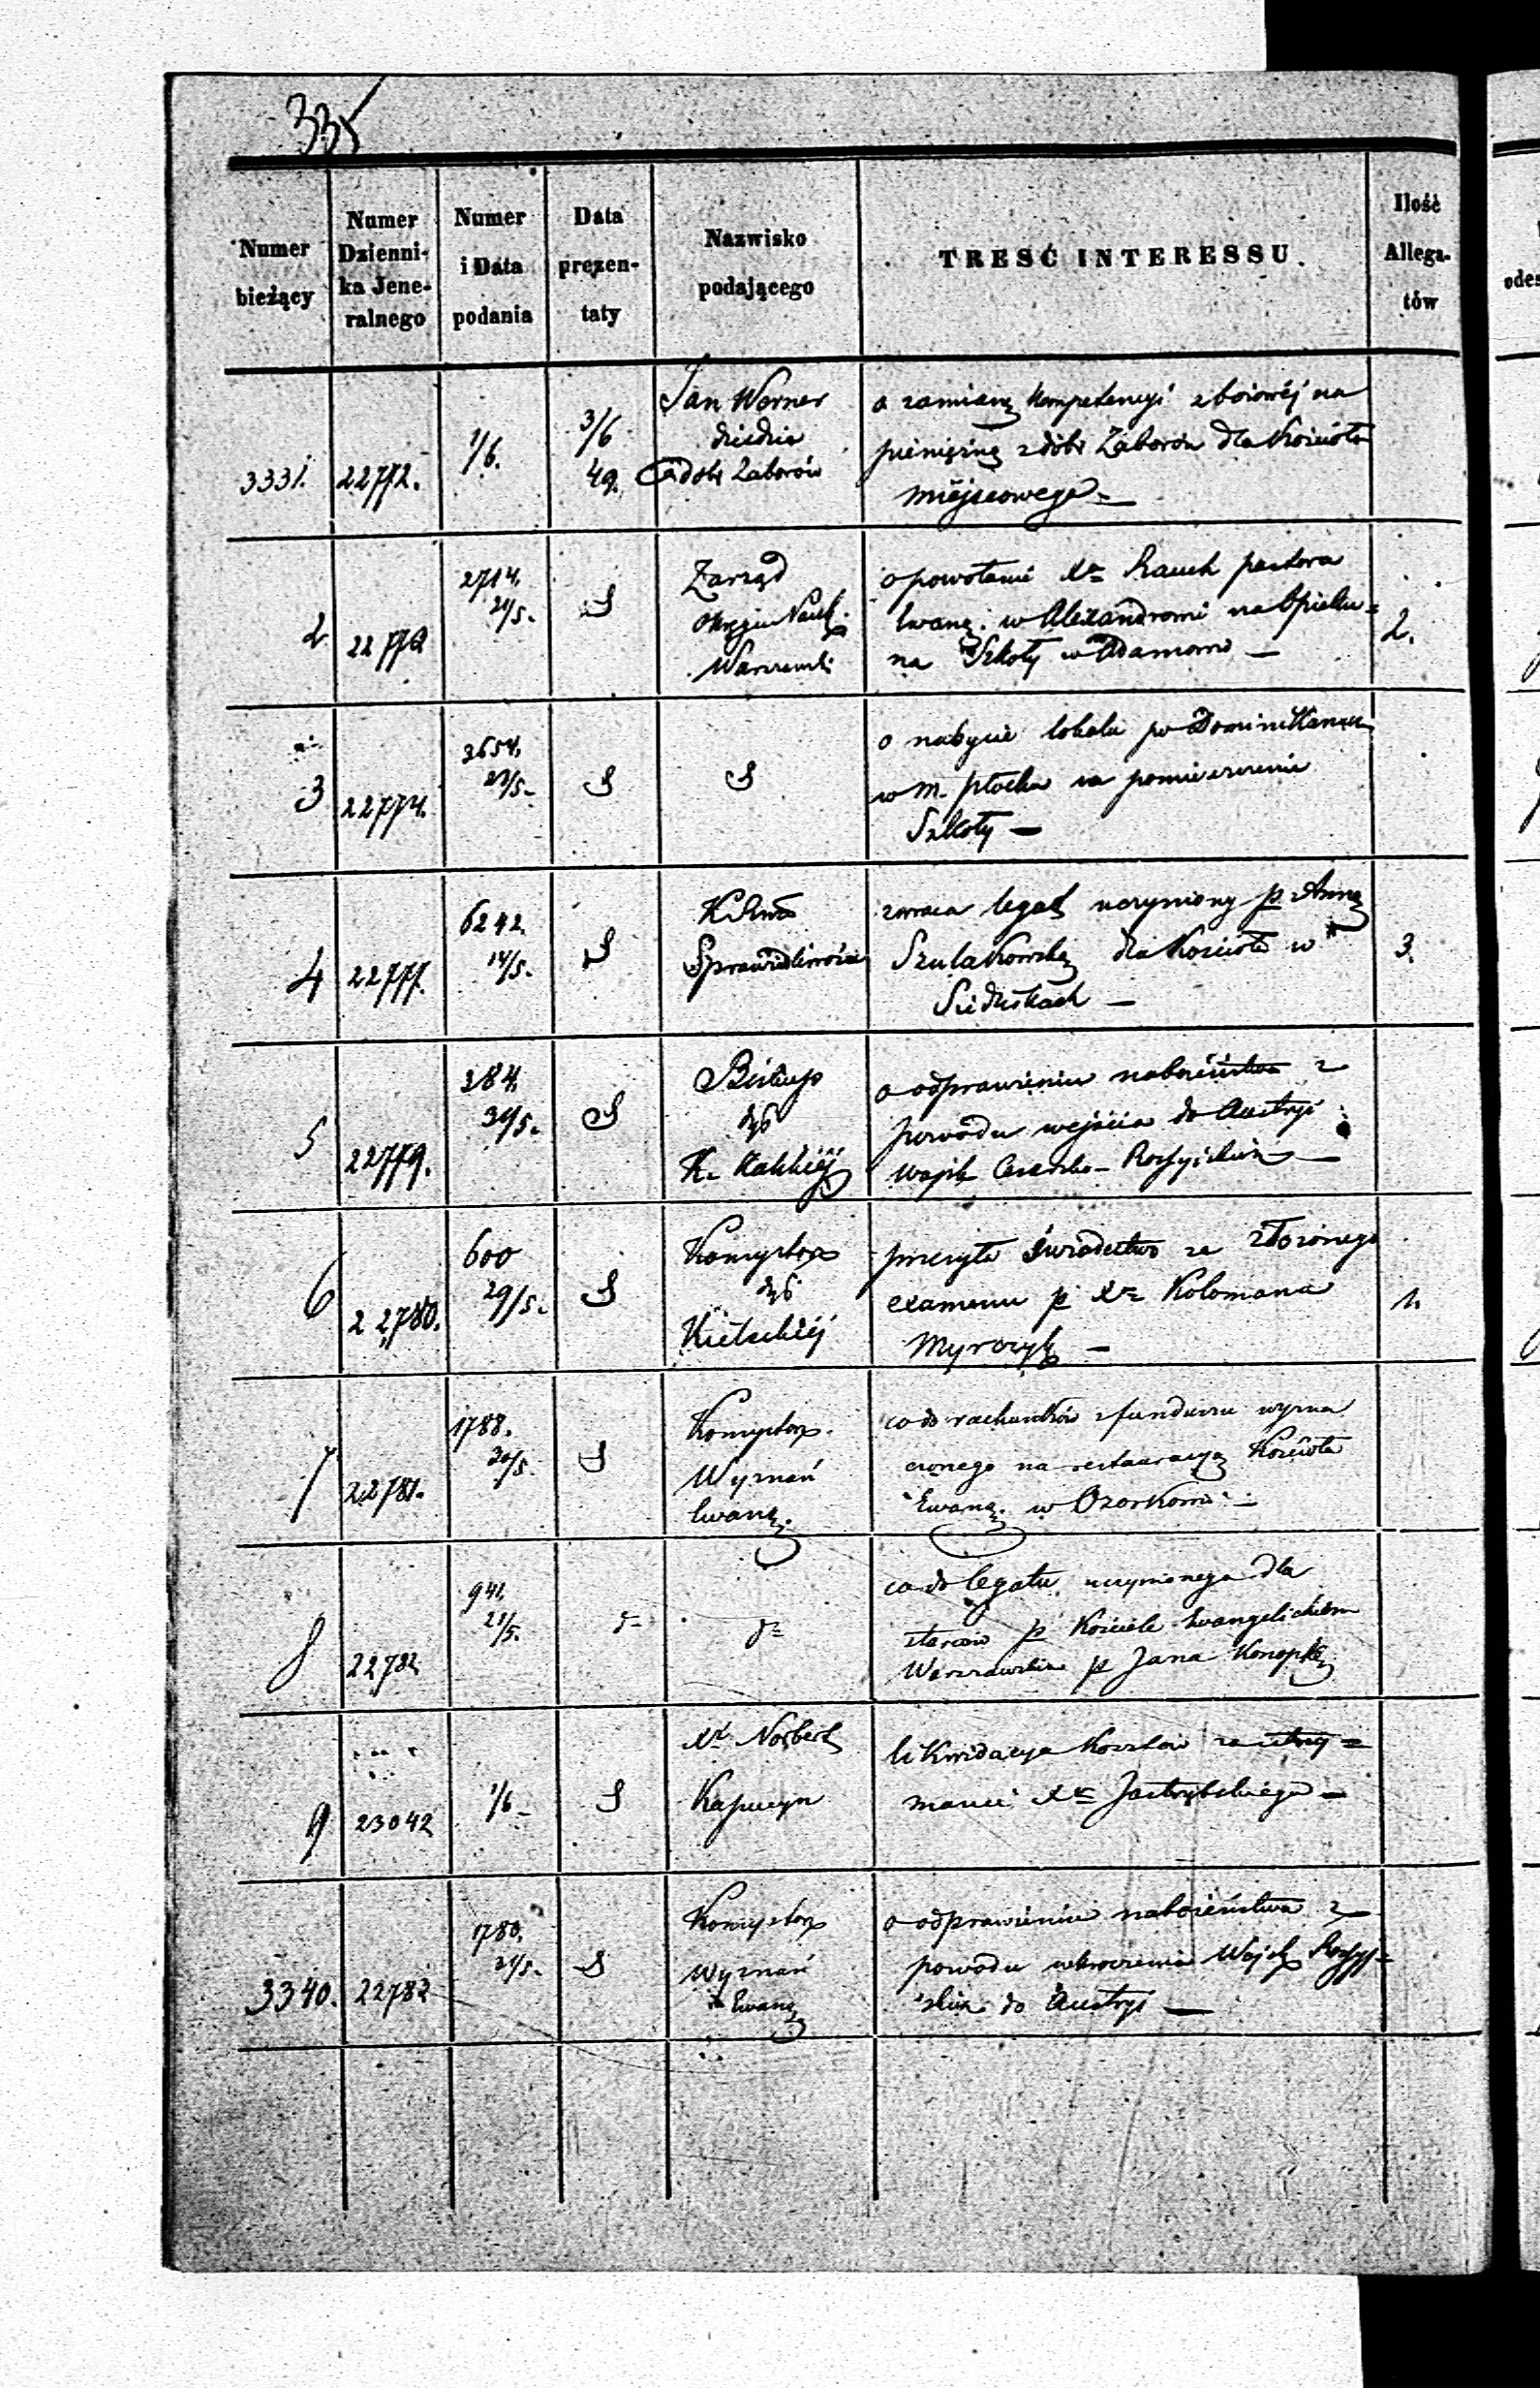 335
Numer bieżący
Numer Dzienni-ka Jene-ralnego
Numer i Data podania
Data prezen-taty
Nazwisko podającego
TRESĆ INTERESSU.
Ilość Allega-tów
3331. 22772. 1/6. 3/6 49.
Jan Werner
dziedzic
dóbr Zaborów
o zamianę kompetencyi zbożowéj na
pieniężną z dóbr Zaborów dla Kościoła
miejscowego —
2 22773 2714. 21/5.
Zarząd
Okręgu Nauk.
Warszawsk.
o powołanie Xa Rauch pastora
Ewang. w Alexandrowie na Opieku=
na Szkoły w Adamowie —
2.
3 22774. 2654. 23/5.
o nabycie lokalu po Dominikanach
w m. Płocku na pomieszczenie
Szkoły —
4 22777. 6242. 14/5.
Sprawiedliwości
zwraca legat uczyniony p. Annę
Szulakowską dla Kościoła w
3.
5 22779. 384. 30/5.
Biskup
dyec
K. Kaliskiéj
o odprawieniu nabożeństwa z
powodu wejścia do Austryi
wojsk Cesarsko-Rossyiskich —
6 22780. 600 29/5.
Konsystorz
dyec
Kieleckiéj
przesyła świadectwo ze złożonego
examenu p Xa Kolomana
Myrczyk —
1.
7 22781. 1788. 30/5.
Konsystorz
Wyznań
Ewang.
co do rachunków z funduszu wyzna
czonego na restauracyę Kościoła
Ewang. w Ozorkowie —
8 22782 941. 21/5. do do
co do legatu uczynionego dla
starców p Kościele Ewangelickim
Warszawskim p Jana Konopkę
9 23042 1/6
Xd Norbert
Kapucyn
likwidacya kosztów za utrzy=
manie Xa Jastrzębskiego —
3340. 22783 1780. 21/5.
Konsystorz
Wyznań
Ewang
o odprawieniu nabożeństwa z
powodu wkroczenia Wojsk Rossyj=
skich do Austryi —